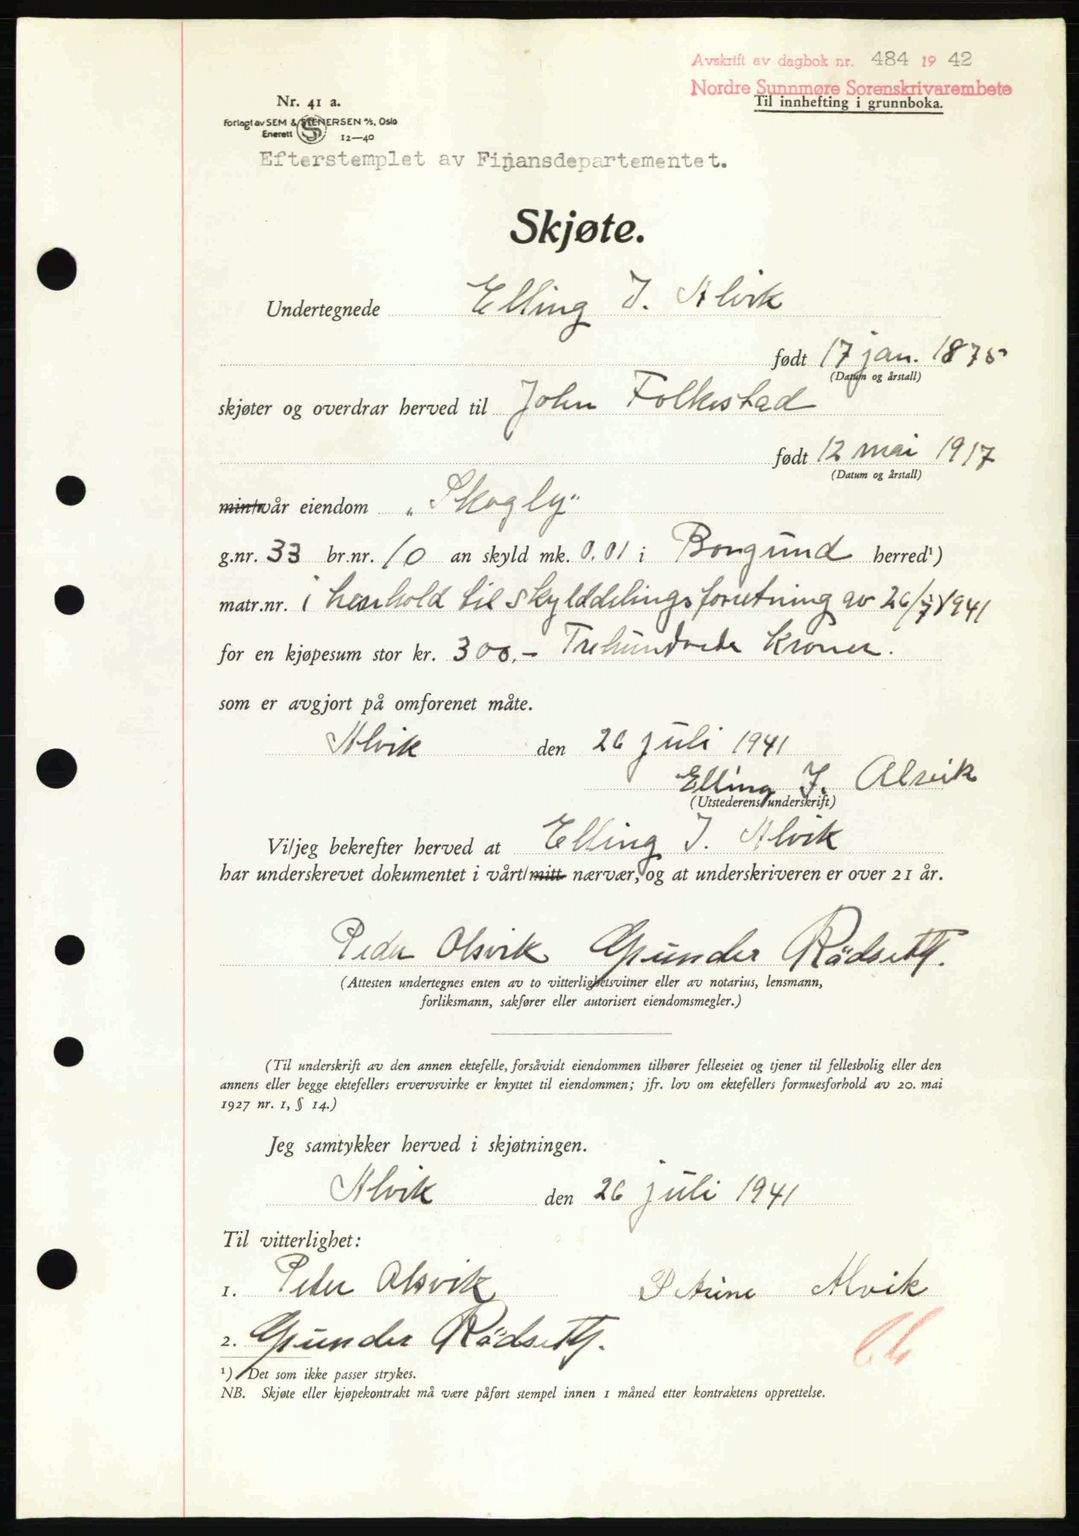 Avskrift av dagbok nr. 484 19 42
Nordre Sunnmøre Sorenskrivarembete
Til innhefting i grunnboka.
Nr. 41 a.
Forlagt av SEM & STENERSEN A/S, Oslo
Enerett 12—40
Efterstemplet av Finansdepartementet.
Skjøte.
Undertegnede Elling J. Alvik
født 17 jan. 1875
(Datum og årstall)
skjøter og overdrar herved til John Folkestad
født 12 mai 1917
(Datum og årstall)
min/vår eiendom „Skogly"
g.nr. 33 br.nr. 10 an skyld mk. 0,01 i Borgund herred¹)
matr.nr. i henhold til skylddelingsforretning av 26/7 1941
for en kjøpesum stor kr. 300,- Trehundrede kroner.
som er avgjort på omforenet måte.
Alvik den 26 juli 1941
Elling J. Alsvik
(Utstederens underskrift)
Vi/jeg bekrefter herved at Elling J. Alvik
har underskrevet dokumentet i vårt/mitt nærvær, og at underskriveren er over 21 år.
Peder Alsvik Gunder Rödseth.
(Attesten undertegnes enten av to vitterlighetsvitner eller av notarius, lensmann,
forliksmann, sakfører eller autorisert eiendomsmegler.)
(Til underskrift av den annen ektefelle, forsåvidt eiendommen tilhører felleseiet og tjener til fellesbolig eller den
annens eller begge ektefellers ervervsvirke er knyttet til eiendommen; jfr. lov om ektefellers formuesforhold av 20. mai
1927 nr. 1, § 14.)
Jeg samtykker herved i skjøtningen.
Alvik den 26 juli 1941
Til vitterlighet:
1. Peder Alsvik Petrine Alvik
2. Gunder Rödseth.
¹) Det som ikke passer strykes.
NB. Skjøte eller kjøpekontrakt må være påført stempel innen 1 måned etter kontraktens opprettelse.